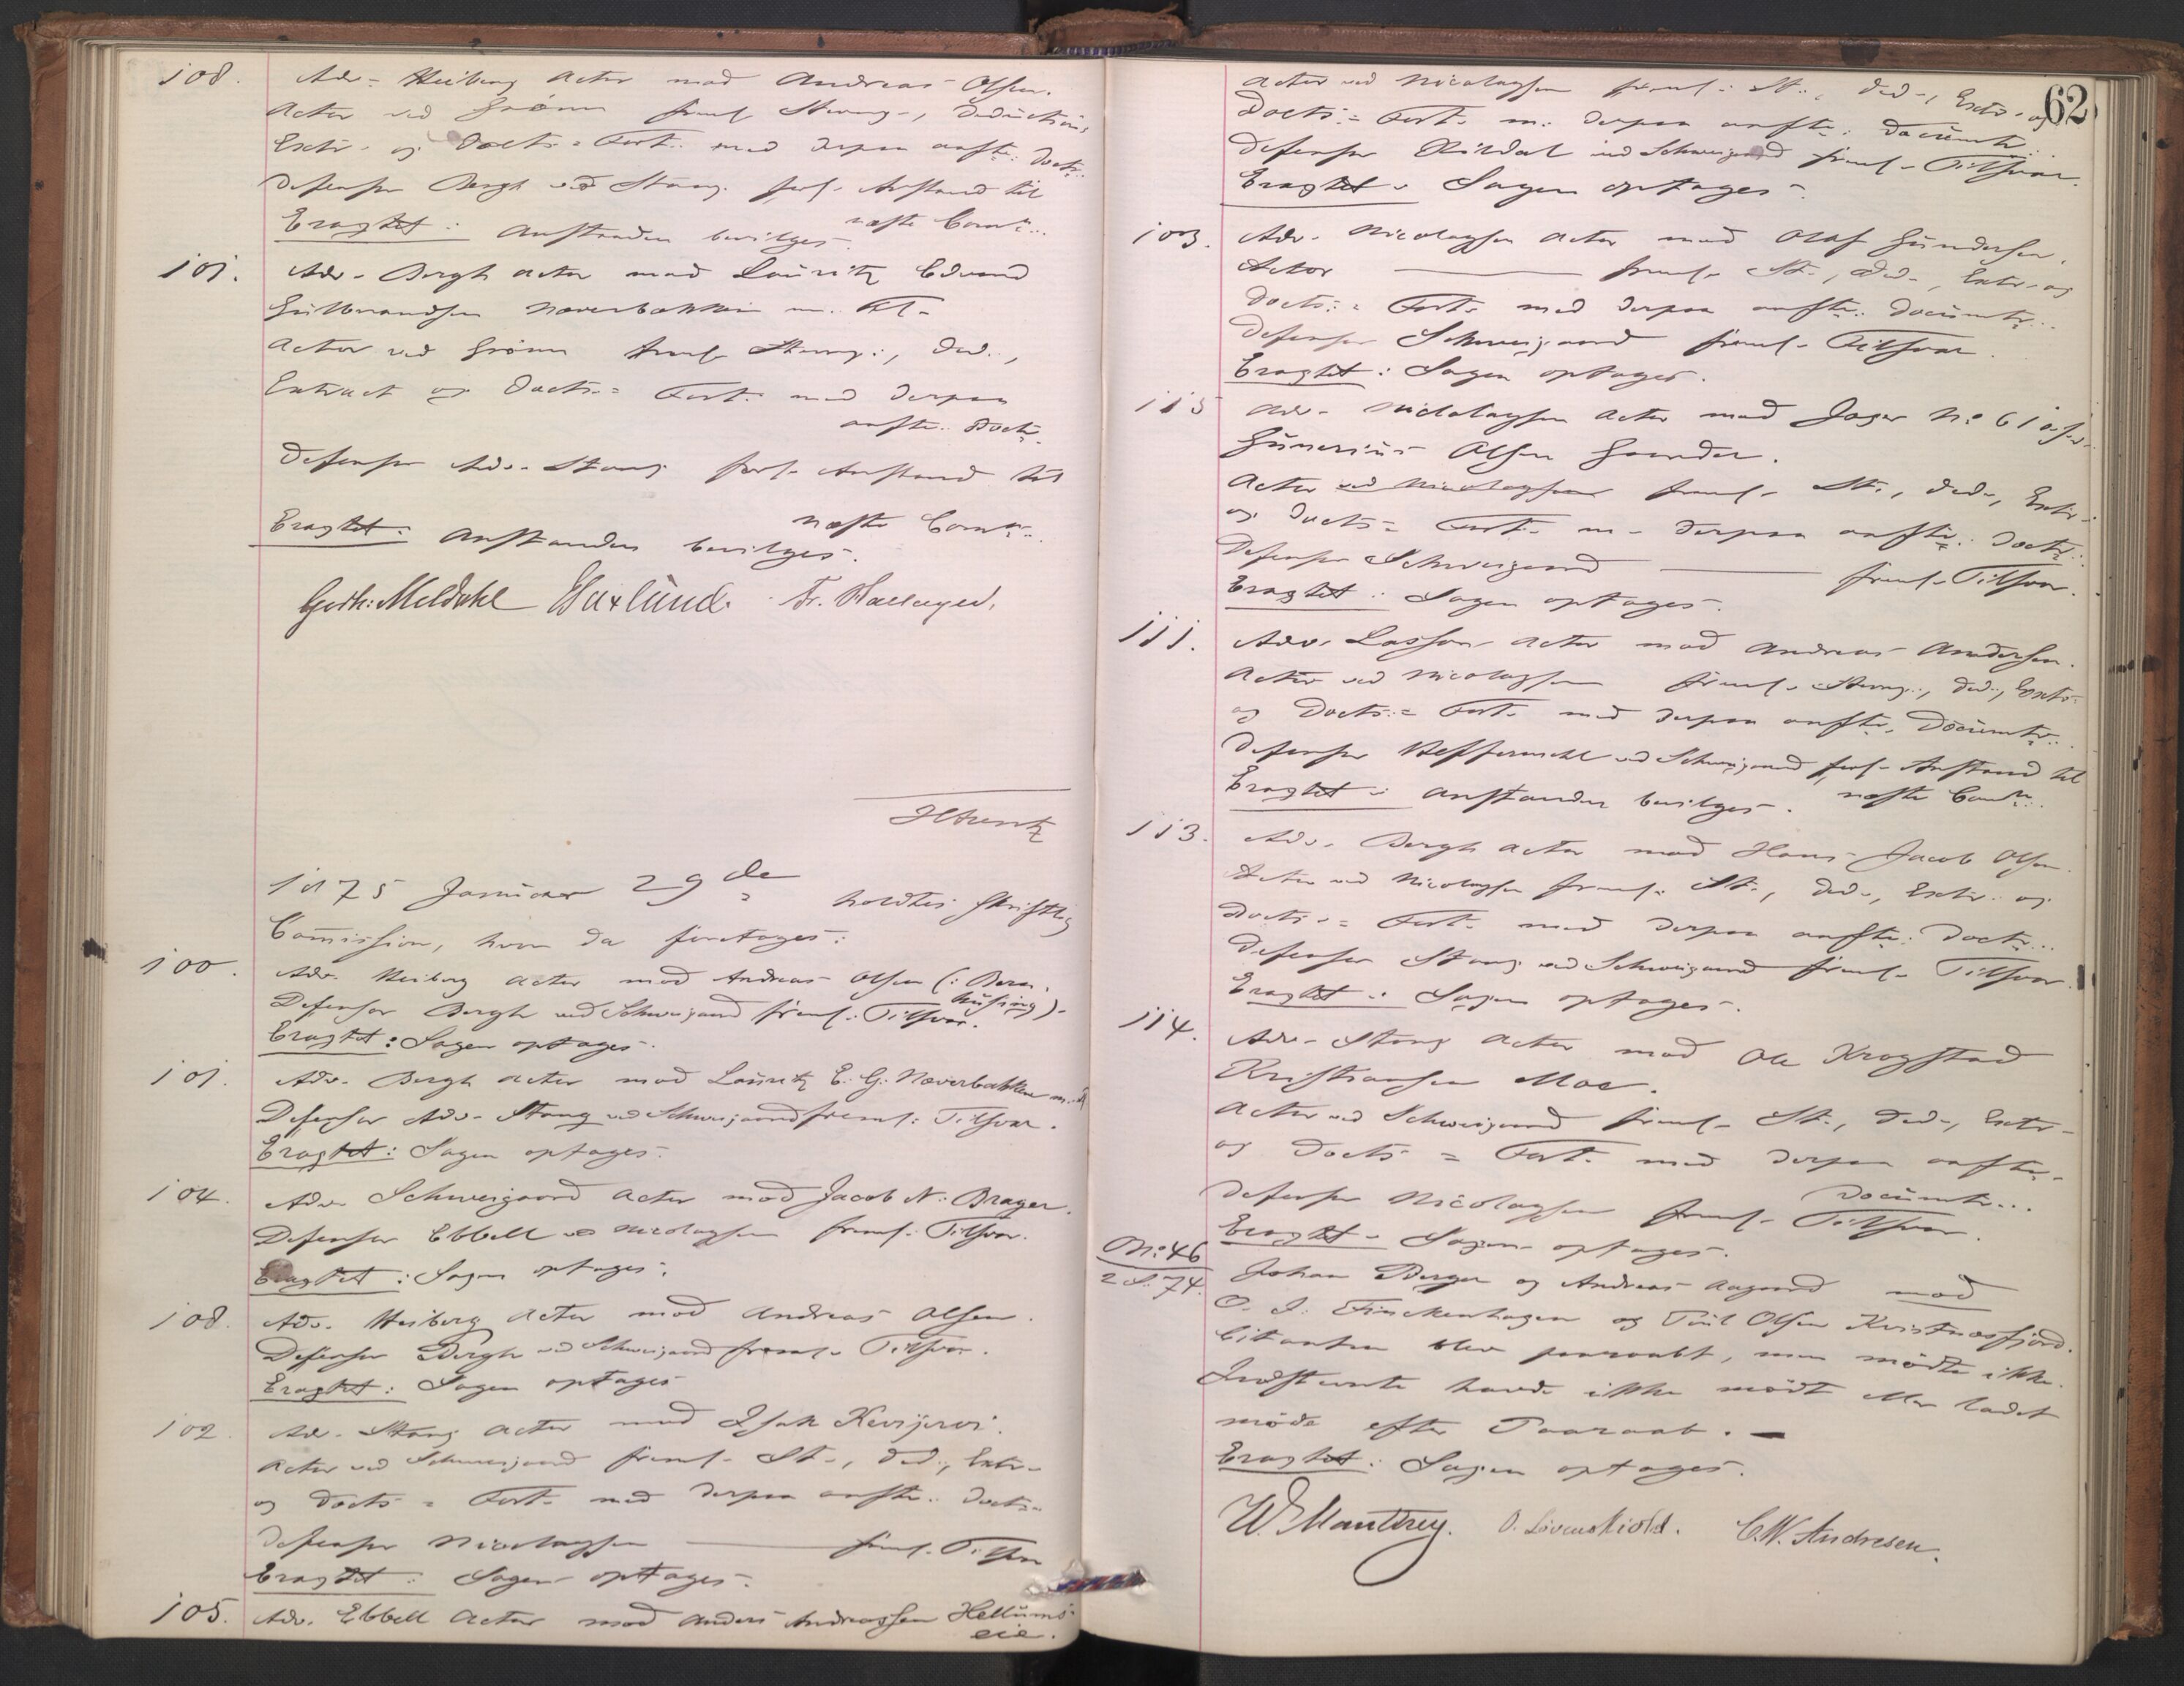 108. Adv. Heiberg Actor mod Andreas Olsen.
Actor ved Grönn freml. Stevng., Deductions,
Extr. og Docts.= Fort. med derpaa anfte. Doctr..
Defensor Bergh ved Stang forl. Anstand til
næste Comn..
Eragtet: Anstanden bevilges.
101. Adv. Bergh Actor mod Lauritz Edvard
Gulbrandsen Nærverbakken m. Fl.
Actor ved Grönn freml. Stevng., Ded.,
Extract og Docts.= Fort. med derpaa
anfte. Doctr.
Defensor Adv. Stang forl. Anstand til
næste Comn..
Eragtet: Anstanden bevilges.
Gerh: Meldahl Haxlund. Fr. Hallager,
1875 Januar 29de holdtes skriftlig
Commission, hvor da foretoges:
100. Adv. Heiberg Actor mod Andreas Olsen (: Bern.
husing).
Defensor Bergh ved Schweigaard freml. Tilsvar.
Eragtet: Sagen optages.
101. Adv. Bergh Actor mod Lauritz E. G. Næverbakken m. Fl
Defensor Adv. Stang ved Schweigaard freml: Tilsvar.
Eragtet: Sagen optages.
104. Adv. Schweigaard Actor mod Jacob N. Brager.
Defensor Ebbell ved Nicolaysen freml. Tilsvar.
Eragtet: Sagen optages.
108. Adv. Heiberg Actor mod Andreas Olsen.
Defensor Bergh ved Schweigaard freml. Tilsvar.
Eragtet: Sagen optages
102. Adv. Stang Actor mod Isak Keirijervi.
Actor ved Schweigaard freml. St., Ded., Extr.
og Docts = Fort. med derpaa anfte. Doctr.
Defensor Nicolaysen — freml. Tilsvar
Eragtet: Sagen optages.
105. Adv. Ebbell Actor mod Anders Andreassen Hellums-
eie.
62
Actor ved Nicolaysen freml. St., Ded., Extr. og
Docts.= Fort. m. derpaa anfte. Documtr..
Defensor Rildal ved Schweigaard freml. Tilsvar.
Eragtet: Sagen optages.
103. Adv. Nicolaysen Actor mod Olaf Gundersen.
Actor — freml. St., Ded., Extr. og
Docts.= Fort. med derpaa anfte. Documtr..
Defensor Schweigaard freml. Tilsvar.
Eragtet: Sagen optages.
115 Adv. Nicolaysen Actor mod Jager No 61
Gunerius Olsen Grinder.
Actor ved Nicolaysen freml. St., Ded., Extr.
og Docts= Fort. m. derpaa anfte. Doctr.
Defensor Schweigaard — freml. Tilsvar.
Eragtet: Sagen optages.
111. Adv. Lasson Actor mod Andreas Andersen.
Actor ved Nicolaysen freml. Stevng., Ded., Extr.
og Docts.= Fort. med derpaa anfte. Documtr..
Defensor Hefferméhl ved Schweigaard forl. Anstand til
næste Comn..
Eragtet: Anstanden bevilges.
113. Adv. Bergh Actor mod Hans Jacob Olsen.
Actor ved Nicolaysen freml. St., Ded., Extr. og
Docts.= Fort. med derpaa anfte. Doctr..
Defensor Stang ved Schweigaard freml. Tilsvar.
Eragtet: Sagen optages.
114. Adv. Stang Actor mod Ole Krogstad
Kristiansen Moe.
Actor ved Schweigaard freml. St., Ded., Extr.
og Docts = Fort. med derpaa anfte.
Documtr...
Defensor Nicolaysen freml. Tilsvar.
Eragtet: Sagen optages.
No 46
2 S. 74. Johan Berger og Andreas Aagaard mod
O. J. Finckenhagen og Paul Olsen Kvistnesfjord.
Citanten blev paaraabt, men mödte ikke.
Indstevnte havde ikke mödt eller ladet
möde efter Paaraab. —
Eragtet: Sagen optages.
W. Manthey. O. Lövenskiold. C.N. Andresen.